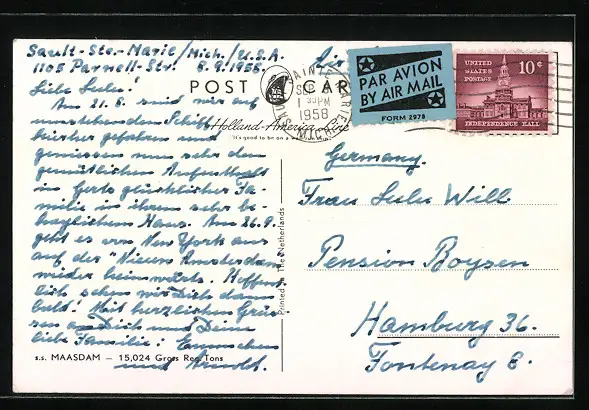 Sault-Ste.-Marie/Mich./U.S.A.
1105 Parnell-Str. 8.9.1958.
POST CARD
PAR AVION
BY AIR MAIL
FORM 2978
UNITED
STATES
POSTAGE
10¢
INDEPENDENCE HALL
SEP
1 30 PM
1958
MICH
Holland-America Line
"It's good to be on a well-
Liebe Lulu!
Am 21.8. sind wir auf
umstehendem Schiff
hierher gefahren und
geniessen nun sehr den
gemütlichen Aufenthalt
in Gerts glücklicher Fa-
milie in ihrem sehr be-
haglichen Haus. Am 26.9.
geht es von New York aus
auf der "Nieuw Amsterdam"
wieder heimwärts. Hoffent-
lich sehen wir Dich dann
bald! Mit herzlichen Grüs-
sen an Dich und Deine
liebe Familie:
und Arnold.
s.s. MAASDAM — 15,024 Gross Reg. Tons
Printed in The Netherlands
Germany.
Frau Lulu Will
Pension Boysen
Hamburg 36.
Fontenay 8.